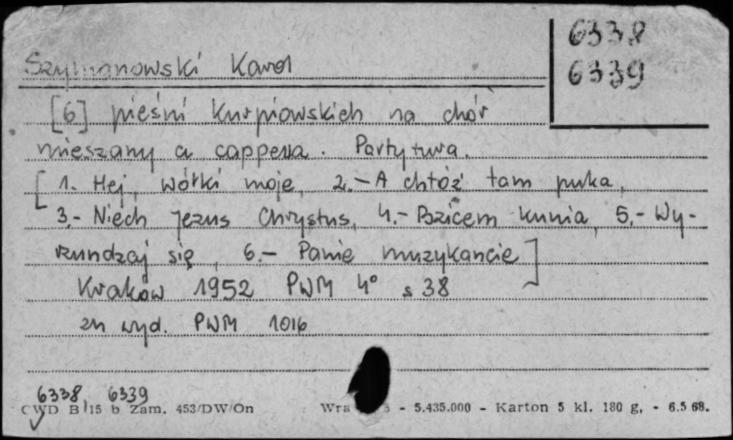 6338
6339
Szymanowski Karol
[6] pieśni kurpiowskich na chór
mieszany a cappella. Partytura.
[1. Hej, wółki moje, 2.- A chtóż tam puka,
3.- Niech Jezus Chrystus, 4.- Bzicem kunia, 5.- Wy-
rzundzaj się, 6.- Panie muzykancie]
Kraków 1952 PWM 4° s 38
zn wyd. PWM 1016
6338 6339
CWD B/15 b Zam. 453/DW/On - 5.435.000 - Karton 5 kl. 180 g, - 6.5 68.